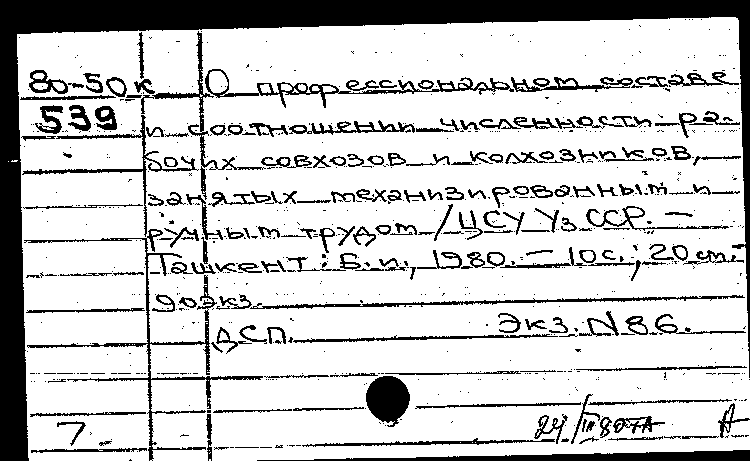 80-50к О профессиональном составе
539 и соотношении численности ра-
бочих совхозов и колхозников,
занятых механизированным и
ручным трудом /ЦСУ УзССР. —
Ташкент: Б.и., 1980. — 10с.; 20 см. -
90экз.
ДСП. Экз. N86.
7. 24/III 80 А